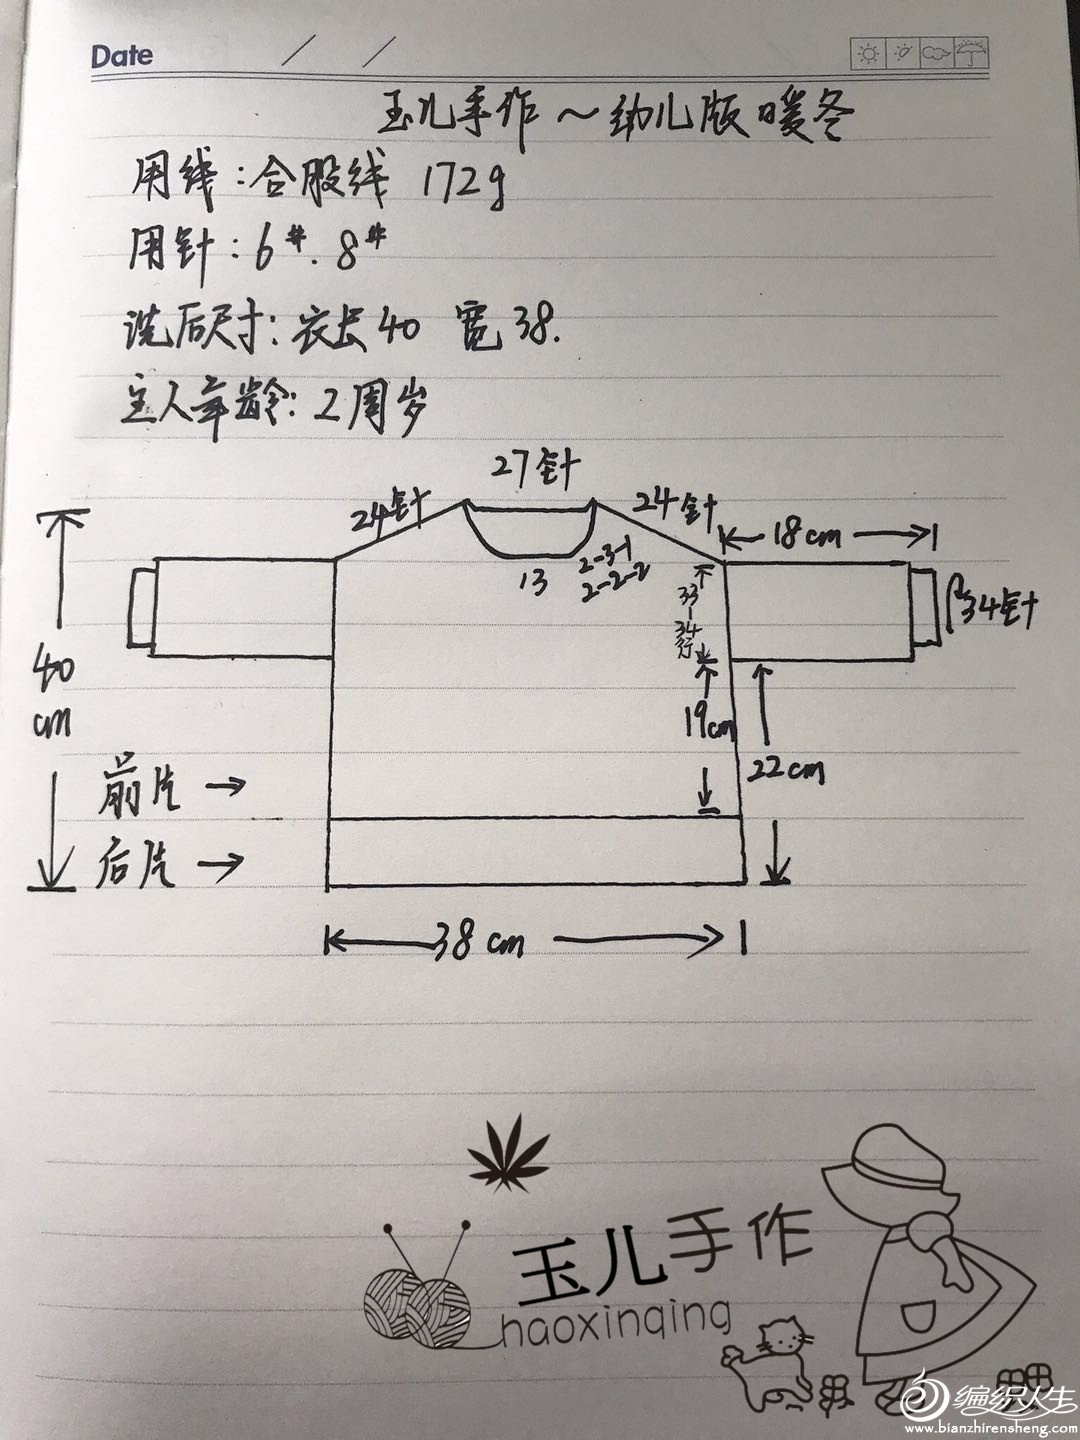 Date
玉儿手作～幼儿版暖冬
用线：合股线 172g
用针：6#. 8#
洗后尺寸：衣长40 宽38.
主人年龄：2周岁
27针
24针
24针
18cm
13
2-3-1
2-2-2
33-34行
34针
40cm
19cm
22cm
前片→
后片→
38cm
玉儿手作
haoxinqing
编织人生
www.bianzhirensheng.com